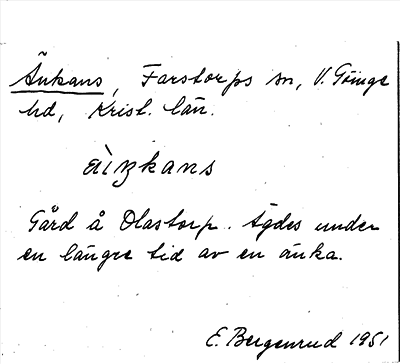 Änkans, Farstorps sn, V. Göinge
hd, Krist. län.
Gård å Olastorp. Ägdes under
en längre tid av en änka.
E. Bergenrud 1951